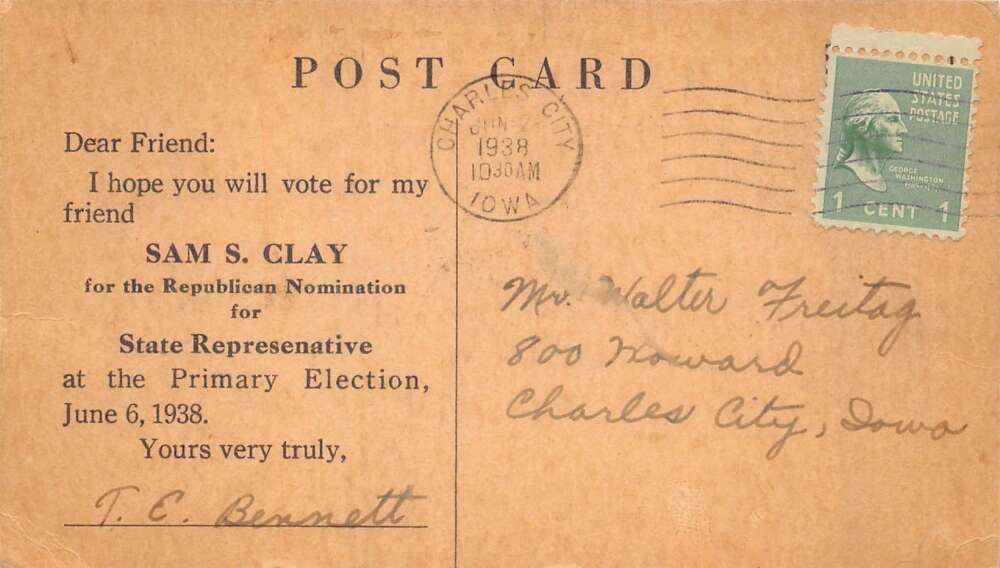 POST CARD
Dear Friend:
I hope you will vote for my
friend
SAM S. CLAY
for the Republican Nomination
for
State Represenative
at the Primary Election,
June 6, 1938.
Yours very truly,
T. C. Bennett
CHARLES CITY
JUN
1938
10 30 AM
IOWA
UNITED
STATES
POSTAGE
GEORGE
WASHINGTON
1 CENT 1
Mr. Walter Freitag
800 Howard
Charles City, Iowa